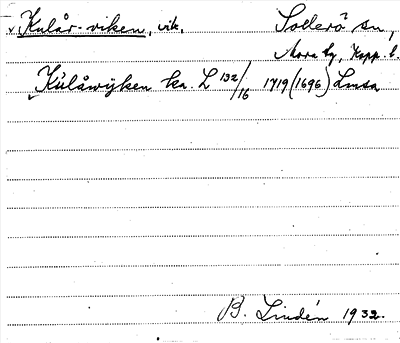 Kulår-viken, vik. Sollerö sn,
Mora tg, Kopp. l.
Kúlåwÿken ka. L 132/16 1719 (1696) Lmsa
B. Lindén 1932.